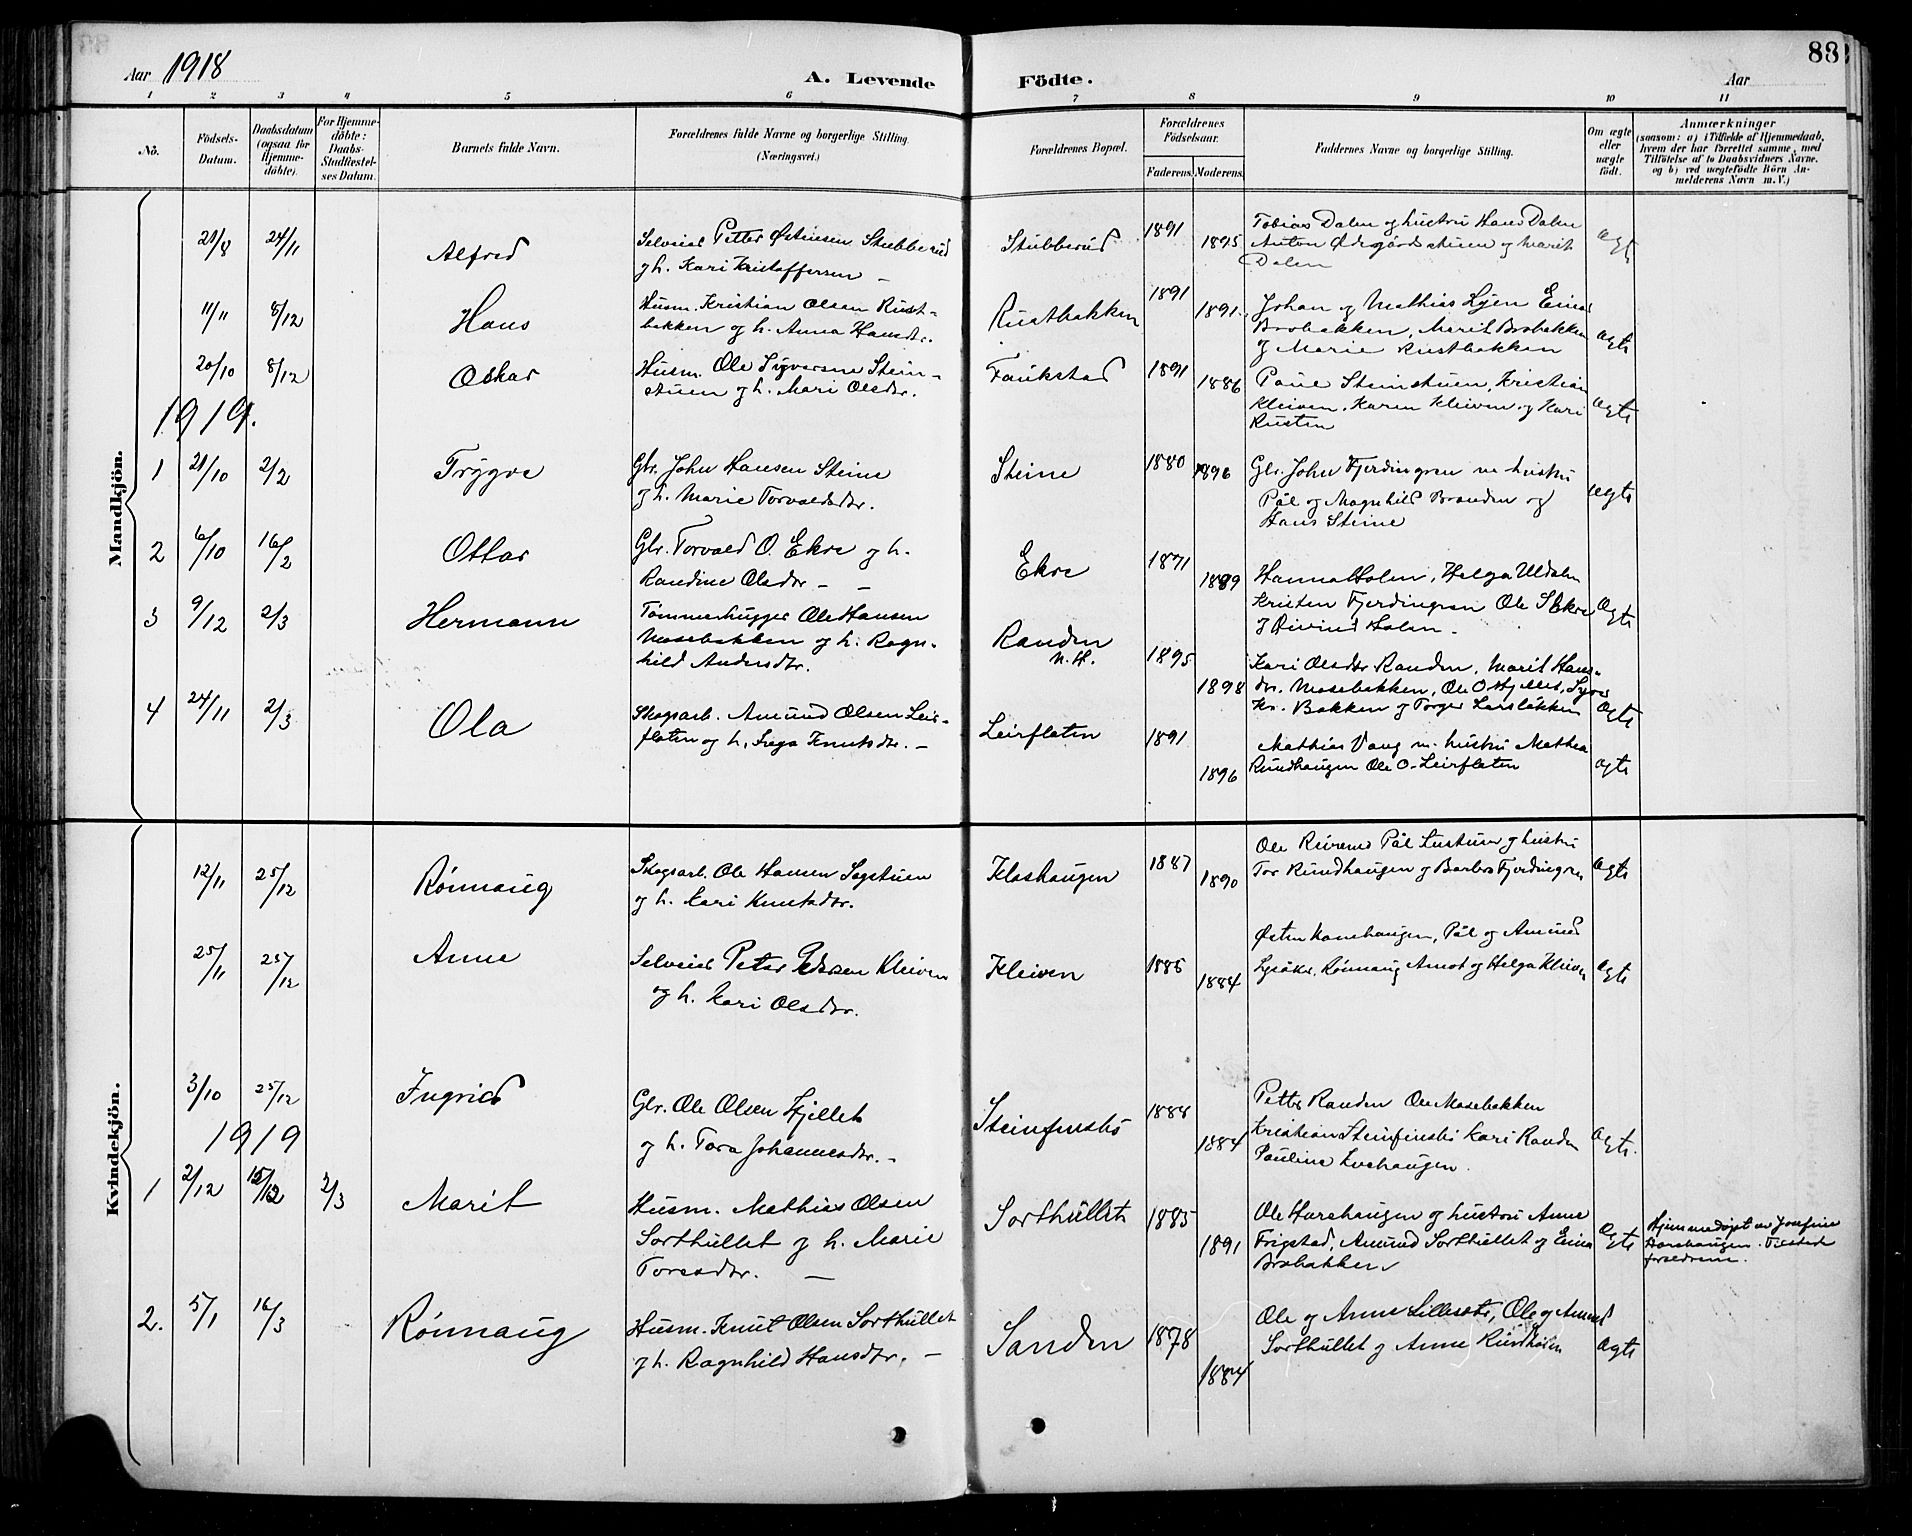 Aar 1918
A. Levende Födte.
Aar
88
1 2 3 4 5 6 7 8 9 10 11
No.
Födsels-
Datum.
Daabsdatum
(ogsaa for
Hjemme-
döbte).
For Hjemme-
döbte:
Daabs-
Stadfæstel-
ses Datum.
Barnets fulde Navn.
Forældrenes fulde Navne og borgerlige Stilling.
(Næringsvei.)
Forældrenes Bopæl.
Forældrenes
Födselsaar.
Faderens. Moderens.
Faddernes Navne og borgerlige Stilling.
Om ægte
eller
uægte
födt.
Anmærkninger
(saasom: a) i Tilfælde af Hjemmedaab,
hvem der har forrettet samme, med
Tilföielse af to Daabsvidners Navne.
og b) ved uægtefödte Börn An-
melderens Navn m. V.)
Mandkjön.
28/8 24/11 Alfred
Selveier Petter Østensen Stubberud
g h. Kari Kristoffersen –
Stubberud 1891 1895
Tobias Dalen og hustru Hans Dalen
Anton Ødegårdsstuen og Marit
Dalen
ægte
11/11 8/12 Hans
Husm. Kristian Olsen Rust-
bakken og h. Anna Hansdtr.
Rustbakken 1891 1891.
Johan og Mathias Lyen Einar
Brobakken, Marit Brobakken
og Marie Rustbakken
ægte
20/10 8/12 Oskar
Husm. Ole Syversen Stein-
stuen og h. Mari Olsdtr.
Faukstad 1891 1886
Paul Steinstuen, Kristian
Kleiven, Karen Kleiven og Kari
Rusten
ægte
1919.
1 21/10 2/2 Trygve
Gbr. John Hansen Steine
g h. Marie Torvaldsdtr.
Steine 1880 1896
Gbr. John Fjerdingren m hustru
Pål og Magnhild Branden og
Hans Steine
ægte
2 6/10 16/2 Ottar
Gbr. Torvald O. Ekre og h.
Randine Olsdtr – –
Ekre 1871 1889
Hanna Holen, Helga Uldalen
Kristen Fjerdingren Ole S Ekre
g Øivind Holen.
ægte
3 9/12 2/3 Hermann
Tømmerhugger Ole Hansen
Mosebakken og h. Ragn-
hild Andersdtr.
Randen
N. H.
1895 1898
Kari Olsdtr Randen, Marit Hans-
dtr. Mosebakken, Ole O. Hjellet, Syver
Kr. Bakken og Torger Larsløkken
ægte
4 24/11 2/3 Ola
Skogsarb. Amund Olsen Leir-
flaten og h. Inga Knutsdtr. –
Leirflaten 1891 1896
Mathias Vang m. hustru Mathea
Rundhaugen Ole O. Leirflaten
ægte
Kvindekjön.
12/11 25/12 Rønnaug
Skogsarb. Ole Hansen Sagstuen
og h. Kari Knutsdtr.
Klashaugen 1887 1890
Tor Rundhaugen og Barbro Fjerdingren
ægte
25/11 25/12 Anne
Selveier Peter Pedersen Kleiven
og h. Kari Olsdtr.
Kleiven 1885 1884
Østen Konehaugen, Pål og Amund
Lysåker, Rønnaug Amot og Helga Kleiven
ægte
3/10 25/12 Ingrid
Gbr. Ole Olsen Hjellet
og h. Tora Johannesdtr. –
Steinfinsbø 1888 1884
Petter Randen Ole Mosebakken
Kristian Steinfinsbø Kari Randen
Pauline Lohaugen.
ægte.
1919
1 2/12 15/12 2/3 Marit
Husm. Mathias Olsen
Sorthullet og h. Marie
Toresdtr. –
Sorthullet 1885 1891
Ole Harehaugen og hustru Anne
Frigstad, Amund Sorthullet og Erina
Brobakken
ægte
Hjemmedøpt av Josefine
Harehaugen. Tilstede
foreldrene.
2. 5/1 16/3 Rønnaug
Husm. Knut Olsen Sorthullet
g h. Ragnhild Hansdtr. –
Sanden 1878 1884
Ole og Anne Lillesæter, Ole og Amund
Sorthullet og Anne Rundholen
ægte